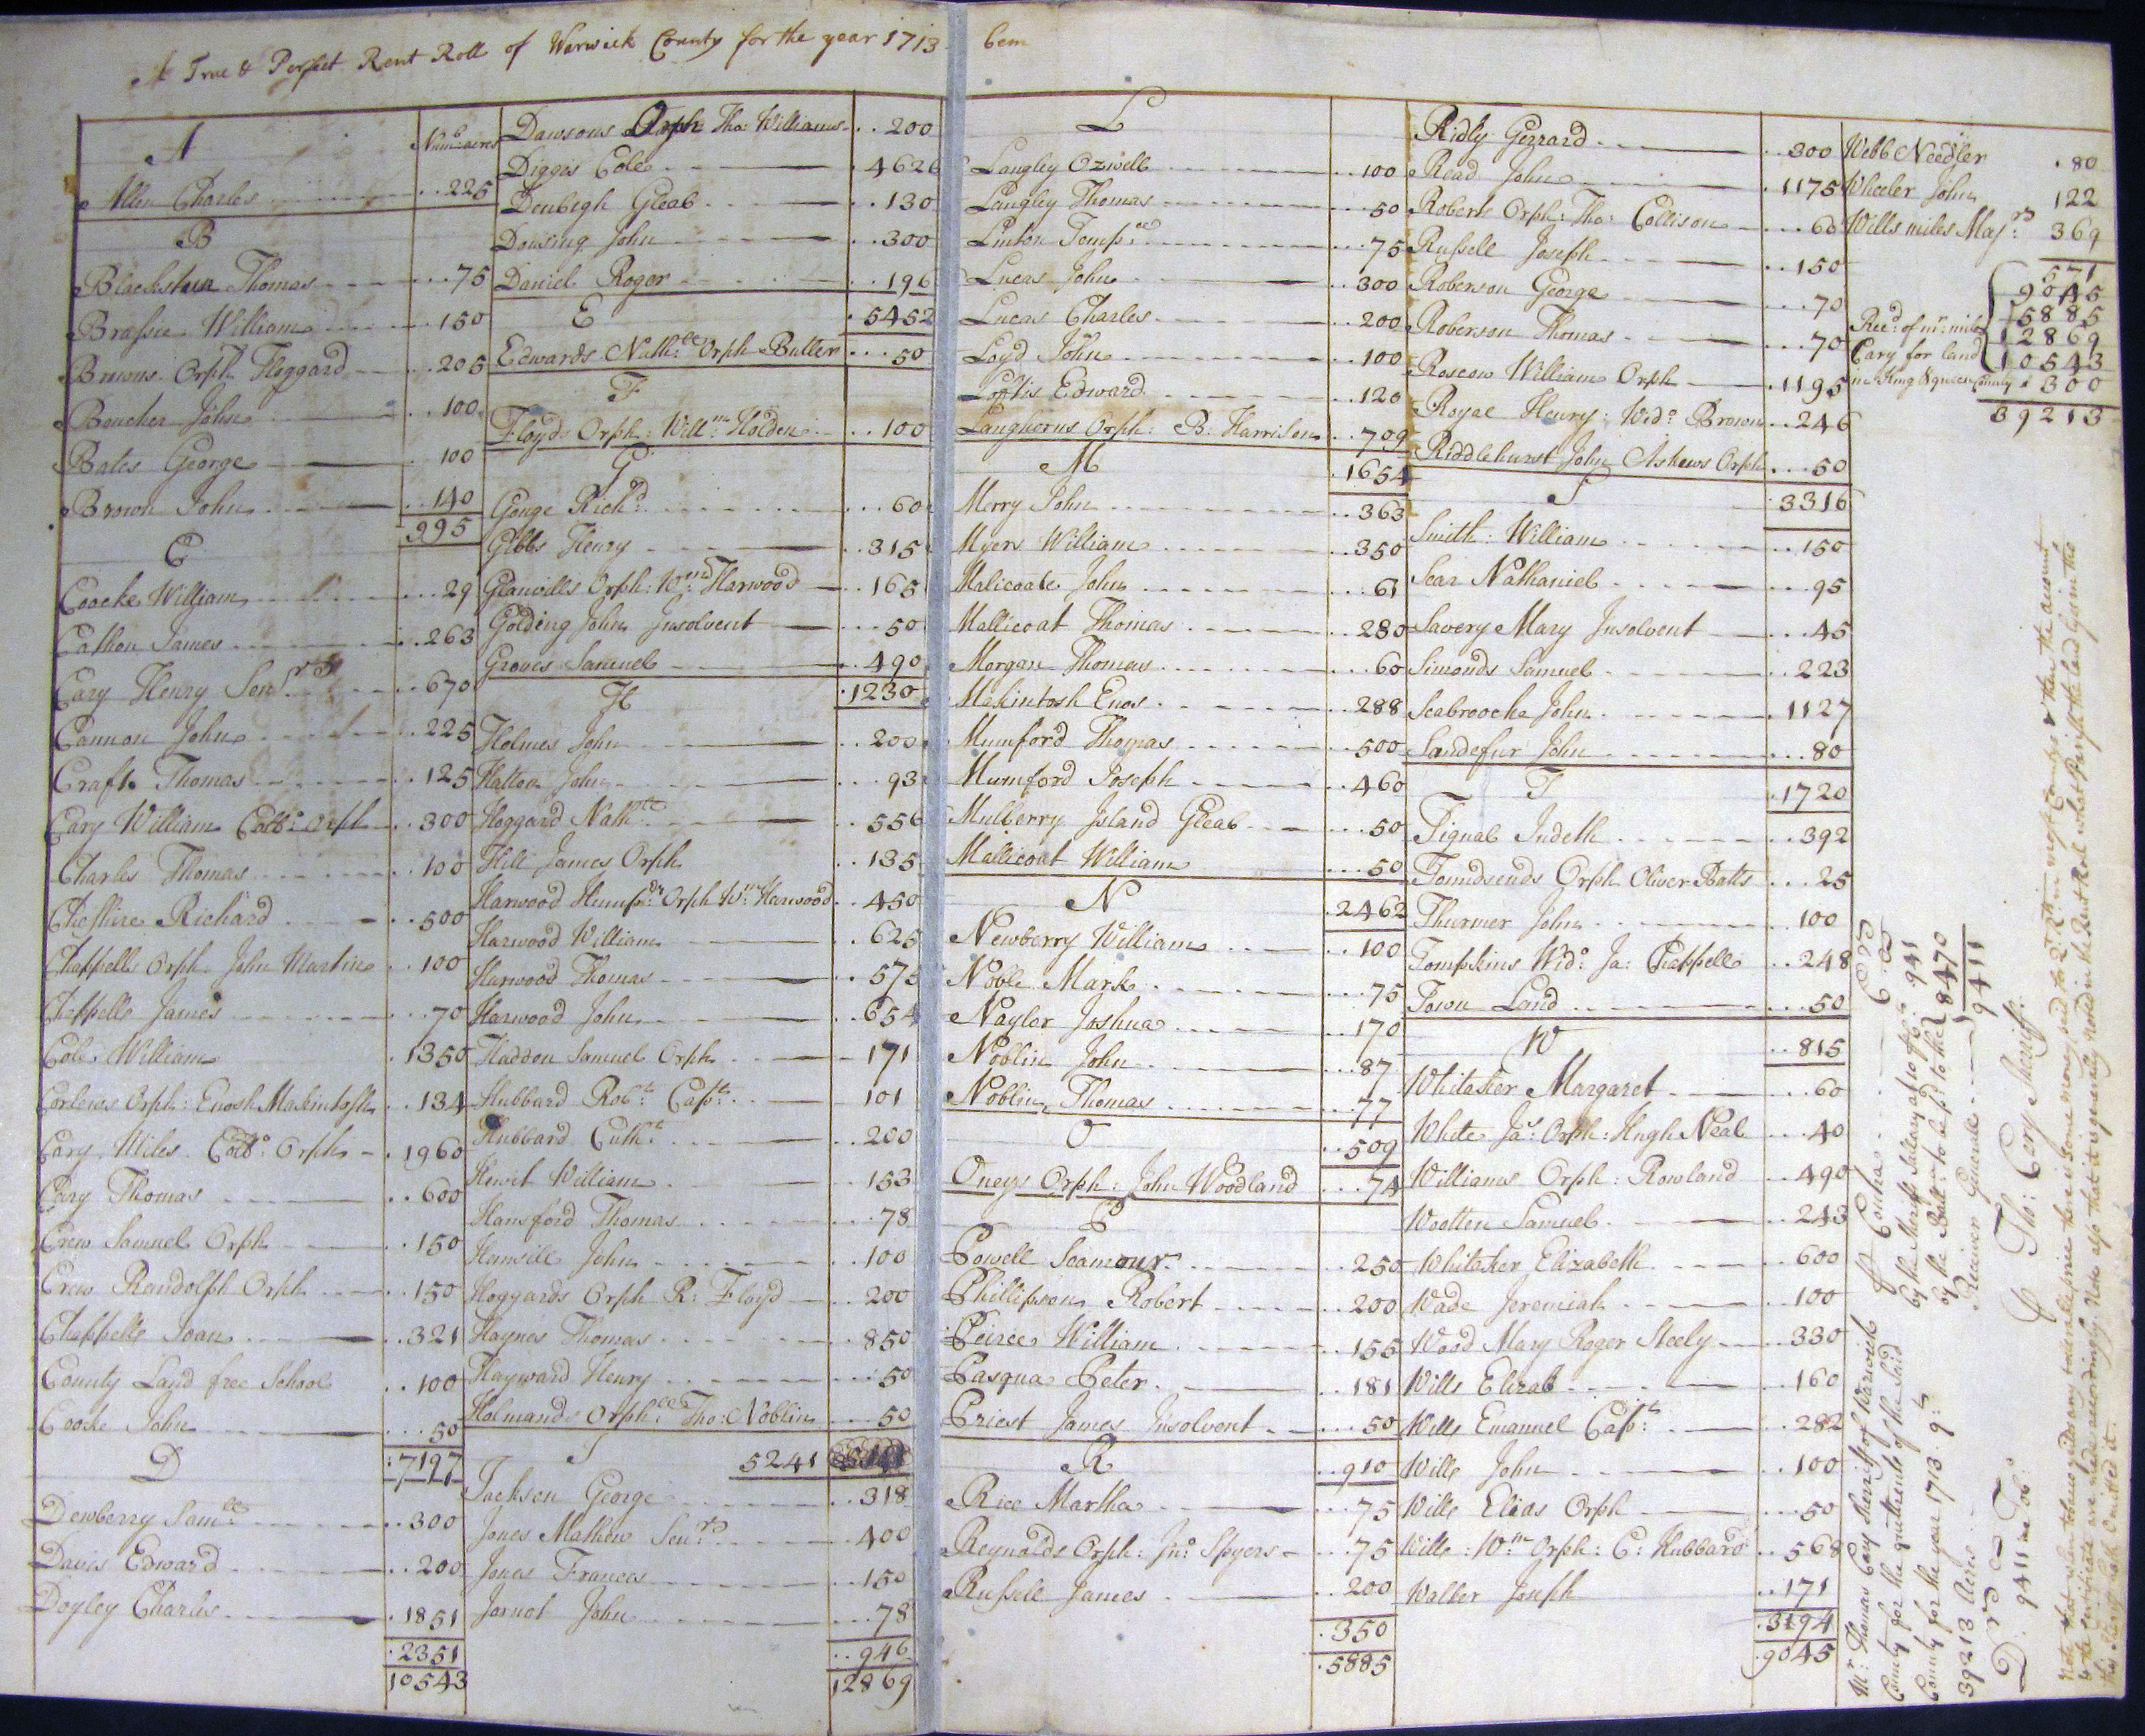 A True & Perfect Rent Roll of Warwick County for the year 1713
A
Num:br acres
Allen Charles 225
B
Blackstun Thomas 75
Brassie William 150
Browns Orph Hoggard 205
Boucher John 100
Bates George 100
Brown John 140
995
C
Coocke William 29
Cathon James 263
Cary Henry Senr 670
Cannon John 225
Crafts Thomas 125
Cary William Collo Orph 300
Charles Thomas 100
Cheshire Richard 500
Chappells Orph John Martin 100
Chappell James 70
Cole William 1350
Corleus Orph: Enosh Makintosh 134
Cary Miles Collo: Orph 1960
Cary Thomas 600
Crew Samuel Orph 150
Crew Randolph Orph 150
Chappell Joan 321
County Land free School 100
Cooke John 50
7197
D
Dewberry Samll 300
Davis Edward 200
Doyley Charles 1851
2351
10543
Dawsons Orph Tho: Williams 200
Diggis Cole 4626
Denbigh Gleab 130
Dowsing John 300
Daniel Roger 196
5452
E
Edwards Nathll Orph Butler 50
F
Floyds Orph: Willm: Holden 100
G
Gonge Richd 60
Gibbs Henry 315
Glanvills Orph: Wm Harwood 165
Golding John Insolvent 50
Groves Samuel 490
1230
H
Holmes John 200
Hatton John 93
Hoggard Nathll 556
Hill James Orph 135
Harwood Humpry: Orph Wm: Harwood 450
Harwood William 625
Harwood Thomas 575
Harwood John 654
Haddon Samuel Orph 171
Hubbard Robt: Capt: 101
Hubbard Cutht 200
Hewit William 153
Hansford Thomas 78
Hanvill John 100
Hoggards Orph R: Floyd 200
Haynes Thomas 850
Hayward Henry 50
Holmands Orph: Tho: Noblin 50
5241
J
Jackson George 318
Jones Mathew Senr 400
Jones Frances 150
Jornot John 78
946
12869
L
Langley Ozwell 100
Langley Thomas 50
Linton Tempce 75
Lucas John 300
Lucas Charles 200
Loyd John 100
Loftis Edward 120
Langhorns Orph: B: Harrison 709
1654
M
Merry John 363
Myers William 350
Malicoate John 61
Mallicoat Thomas 280
Morgan Thomas 60
Makintosh Enos 288
Mumford Thomas 500
Mumford Joseph 460
Mulberry Island Gleab 50
Mallicoat William 50
2462
N
Newberry William 100
Noble Mark 75
Naylor Joshua 170
Noblin John 87
Noblin Thomas 77
509
O
Oneys Orph: John Woodland 74
P
Powell Seamour 250
Phillipson Robert 200
Peirce William 155
Pasqua Peter 181
Priest James Insolvent 50
910
R
Rice Martha 75
Reynalds Orph: Jno Spyers 75
Russell James 200
350
5885
Ridly Gerrard 300
Read John 1175
Roberts Orph: Tho: Collison 60
Russell Joseph 150
Roberson George 70
Roberson Thomas 70
Roscow William Orph 1195
Royal Henry: Wido Brown 246
Riddlehurst John Askews Orph 50
3316
S
Smith: William 150
Scar Nathaniel 95
Savery Mary Insolvent 45
Simonds Samuel 223
Seabroocke John 1127
Sandefur John 80
1720
T
Tignal Indeth 392
Townsends Orph Oliver Batts 25
Thurmer John 100
Tompkins Wido: Ja: Chappell 248
Town Land 50
815
W
Whitaker Margaret 60
White Jas: Orph: Hugh Neal 40
Williams Orph: Rowland 490
Wootten Samuel 243
Whitaker Elizabeth 600
Wade Jeremiah 100
Wood Mary Roger Steely 330
Wills Elizab 160
Wills Emanuel Capt: 282
Wills John 100
Wills Elias Orph 50
Wills: Wm Orph: C: Hubbard 568
Walker Joseph 171
3194
9045
Webb Needler 80
Wheeler John 122
Wills miles Majrs 369
571
9045
5885
12869
10543
Recd of mr: miles
Cary for land
in King & queen County 300
39213
Mr: Thomas Cary Sheriff of Warwick
County for the quittrents of the said
County for the year 1713
39213 Acres
Dr
9411 in Tobo
P Contra Cr
by the Sherifs Sallary at 10 pr Ct 941
by the Ball: to be pd to the Receiver Generall 8470
9411
P Tho: Cary Sheriff
Note that when tobacco yields any tollerable price there is some money paid for Qt. Rts in most Countys & then the account
& the certificate are made accordingly. Note also that it is generally noted in the Rent Roll what Parish the land lyes in tho
this Sheriff hath Omitted it